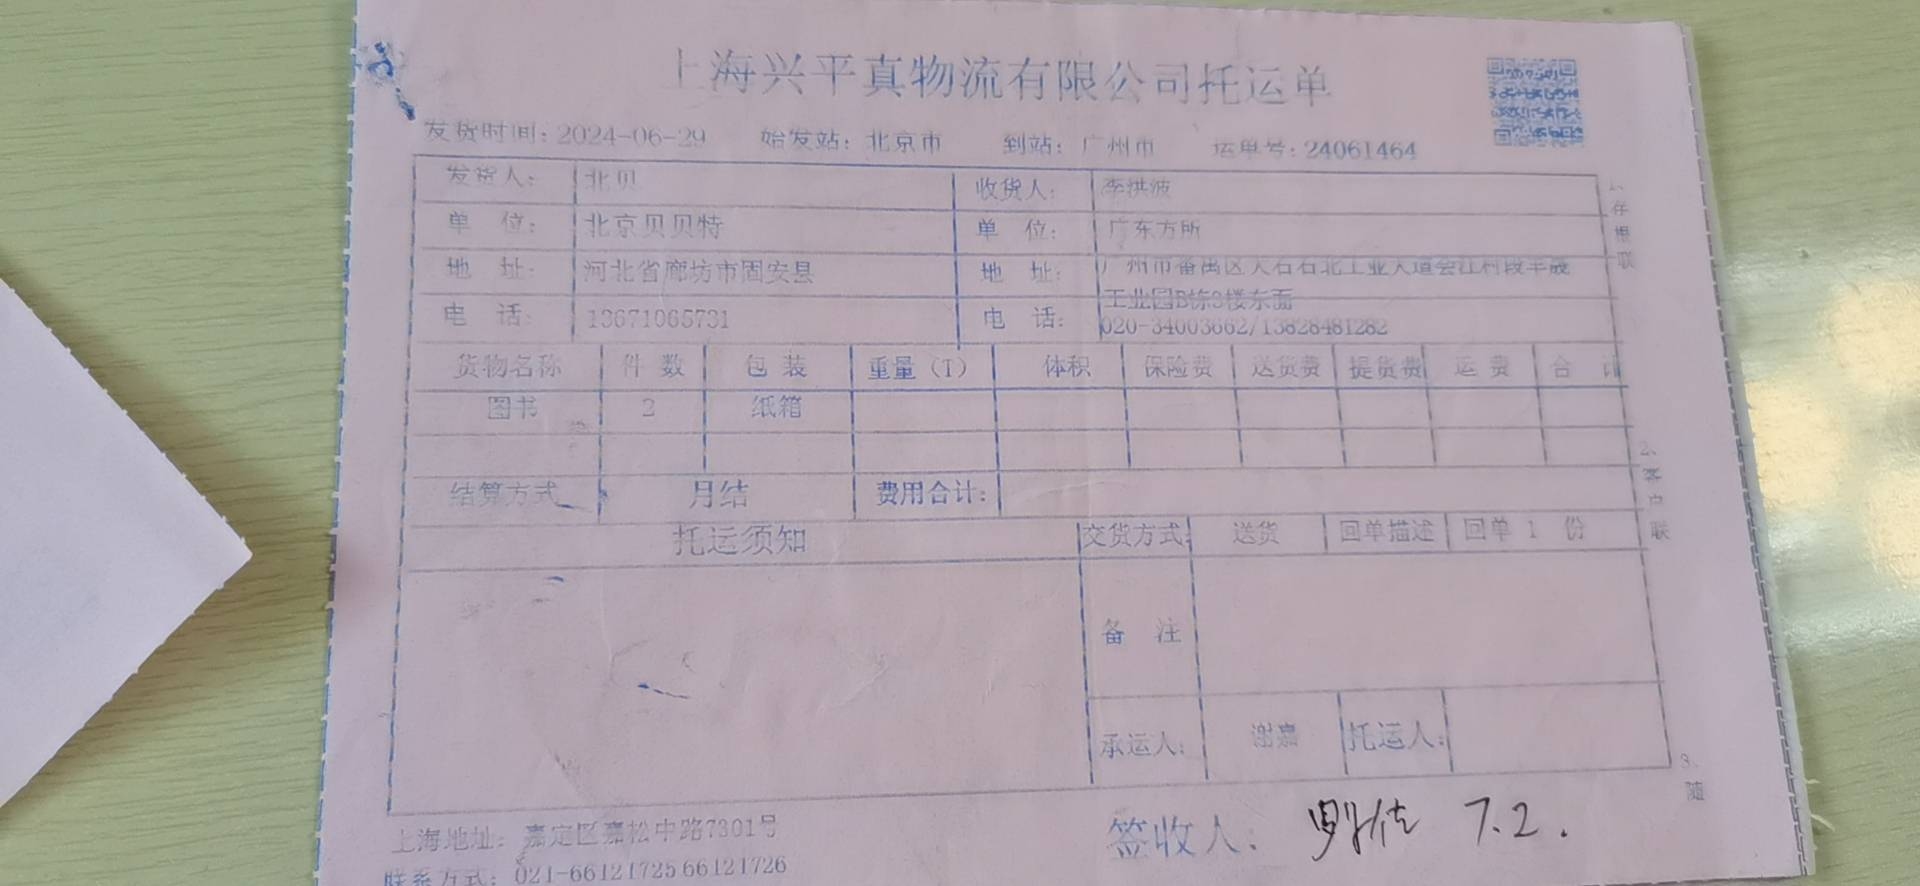 上海兴平真物流有限公司托运单
发货时间：2024-06-29 始发站：北京市 到站：广州市 运单号：24061464
发货人： 北贝 收货人： 李洪波
单 位： 北京贝贝特 单 位： 广东方所
地 址： 河北省廊坊市固安县 地 址： 广州市番禺区大石石北工业大道会江村段
工业园B栋3楼东面
电 话： 13671065731 电 话： 020-34003662/13828481282
货物名称 件 数 包 装 重量（T） 体积 保险费 送货费 提货费 运 费 合 计
图书 2 纸箱
结算方式 月结 费用合计：
托运须知 交货方式： 送货 回单描述 回单 1 份
备 注
承运人： 谢嘉 托运人：
签收人： 7.2.
上海地址：嘉定区嘉松中路7301号
联系方式：021-66121725 66121726
1、存根联
2、客户联
3、随